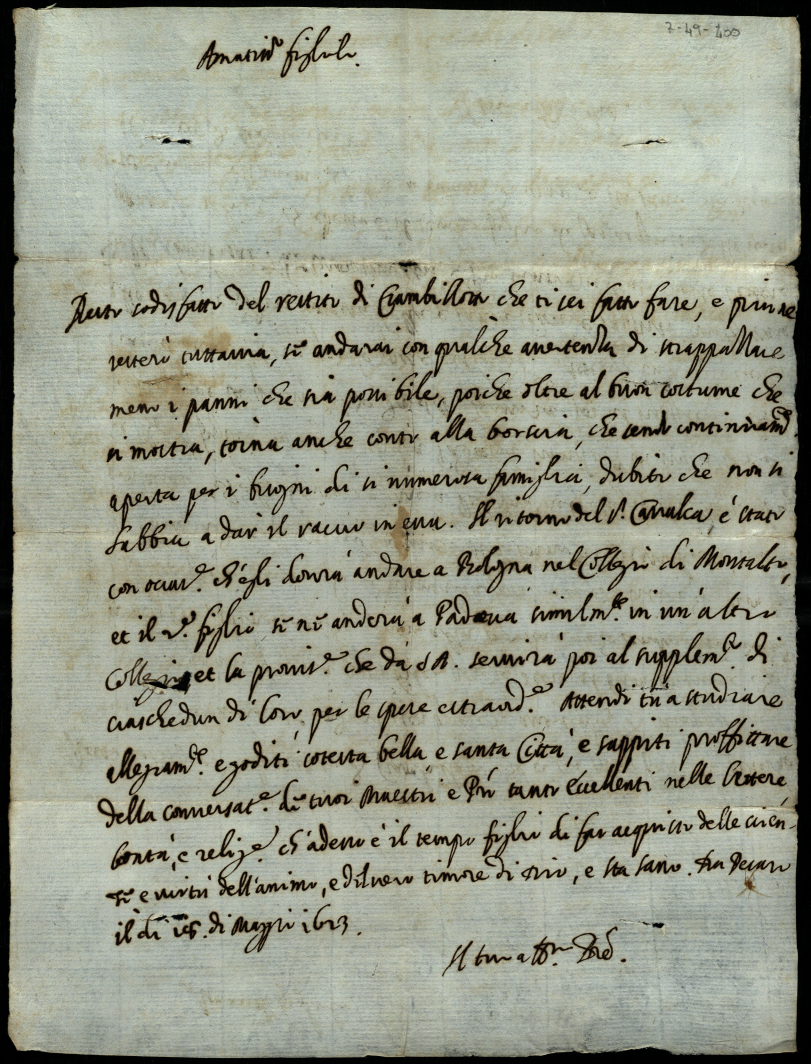 7-49-200
Amatiss.º figliolo.
Resto sodisfatto del vestito di Ciambellotto che ti sei fatto fare, e
viverò tuttavia, se andarai con qualche avertenza di strappazzare
meno i panni che sia possibile, poiche oltre al buon costume che
si mostra, torna anche conto alla borscia, che sendo continuam.te
aperta per i bisogni di si numerosa famiglia, dubito che non si
habbia a dar il sacco in essa. Il ritorno del S.r è stato
con occas.e ch'egli dovrà andare a Bologna nel Collegio di Montalto,
et il figlio se ne anderà a Padova similm.te in un'altro
Collegio et la provis.e che dà S.A. servirà poi al supplem.to di
ciaschedun di loro per le spese estraord.e Attendi tu a studiare
allegram.te e goditi cotesta bella e santa Città, e sappiti proffittare
della conversat.e de tuoi Maestri e P.ri tanto eccellenti nelle lettere,
bontà, e relig.e ch'adesso è il tempo figlio di far acquisto delle scien-
ze e virtù dell'animo, e del vero timore di Dio, e sta sano. Da Pesaro
il di 15. di Maggio 1623.
Il tuo aff.mo Pre.